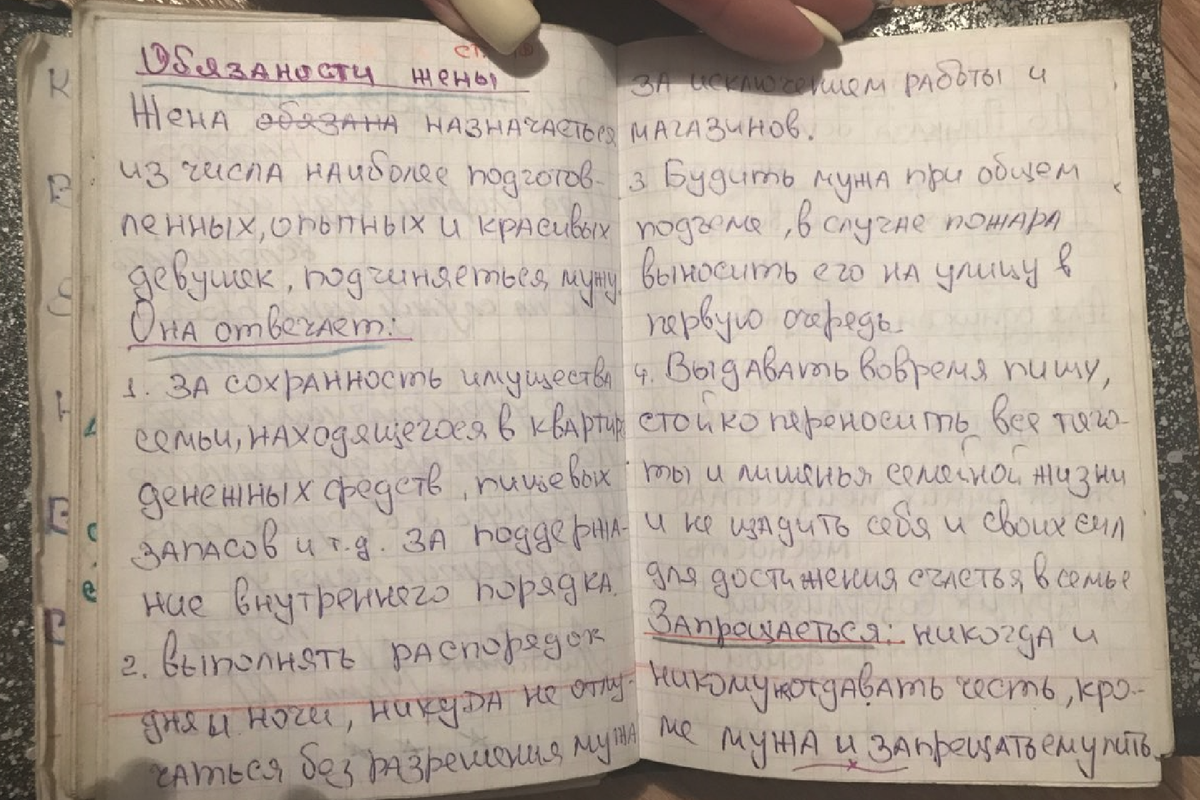 Обязаности жены
Жена обязана назначаеться
из числа наиболее подготов-
ленных, опытных и красивых
девушек, подчиняеться мужу.
Она отвечает:
1. За сохранность имущества
семьи, находящегося в квартире
денежных средств, пищевых
запасов и т.д. За поддержа-
ние внутреннего порядка.
2. Выполнять распорядок
дня и ночи, никуда не отлу-
чаться без разрешения мужа
за исключением работы и
магазинов.
3. Будить мужа при общем
подъеме, в случае пожара
выносить его на улицу в
первую очередь.
4. Выдавать вовремя пищу,
стойко переносить все тяго-
ты и лишенья семейной жизни
и не щадить себя и своих сил
для достижения счастья в семье
Запрещаеться: никогда и
никому отдавать честь, кро-
ме мужа и запрещать ему пить.
К
В
Е
Е